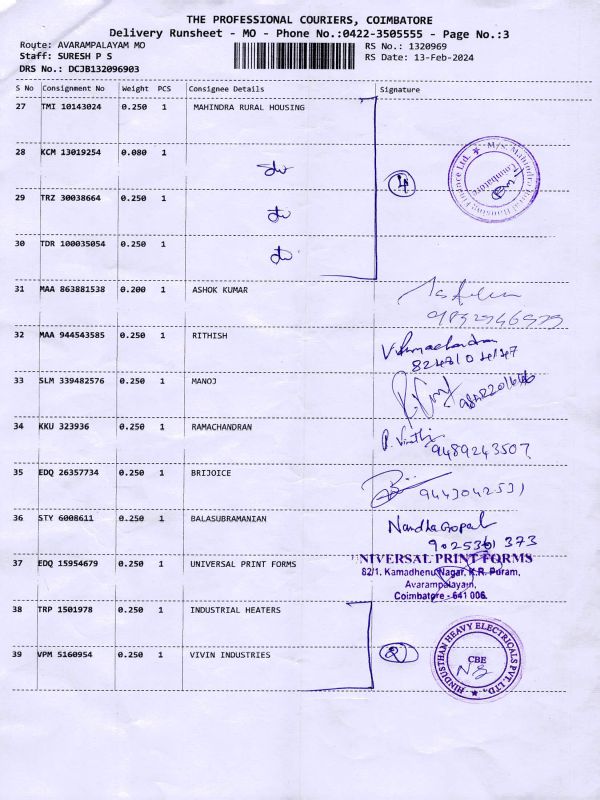 THE PROFESSIONAL COURIERS, COIMBATORE
Delivery Runsheet - MO - Phone No.:0422-3505555 - Page No.:3
Route: AVARAMPALAYAM MO
Staff: SURESH P S
DRS No.: DCJB132096903
RS No.: 1320969
RS Date: 13-Feb-2024
S No Consignment No Weight PCS Consignee Details Signature
27 TMI 10143024 0.250 1 MAHINDRA RURAL HOUSING
28 KCM 13019254 0.080 1
29 TRZ 30038664 0.250 1
30 TDR 100035054 0.250 1
4
M/s. Mahindra Rural Housing Finance Ltd. ★
Coimbatore
31 MAA 863881538 0.200 1 ASHOK KUMAR
32 MAA 944543585 0.250 1 RITHISH
V Ramachandran
33 SLM 339482576 0.250 1 MANOJ
34 KKU 323936 0.250 1 RAMACHANDRAN
9489243507
35 EDQ 26357734 0.250 1 BRIJOICE
9443042531
36 STY 6008611 0.250 1 BALASUBRAMANIAN
NandhaGopal
37 EDQ 15954679 0.250 1 UNIVERSAL PRINT FORMS
NIVERSAL PRINT FORMS
62/1, Kamadhenu Nagar, K.R. Puram,
Avarampalayam,
Coimbatore - 641 006.
38 TRP 1501978 0.250 1 INDUSTRIAL HEATERS
39 VPM 5160954 0.250 1 VIVIN INDUSTRIES
2
HINDUSTHAN HEAVY ELECTRICALS PVT. LTD. ★
CBE